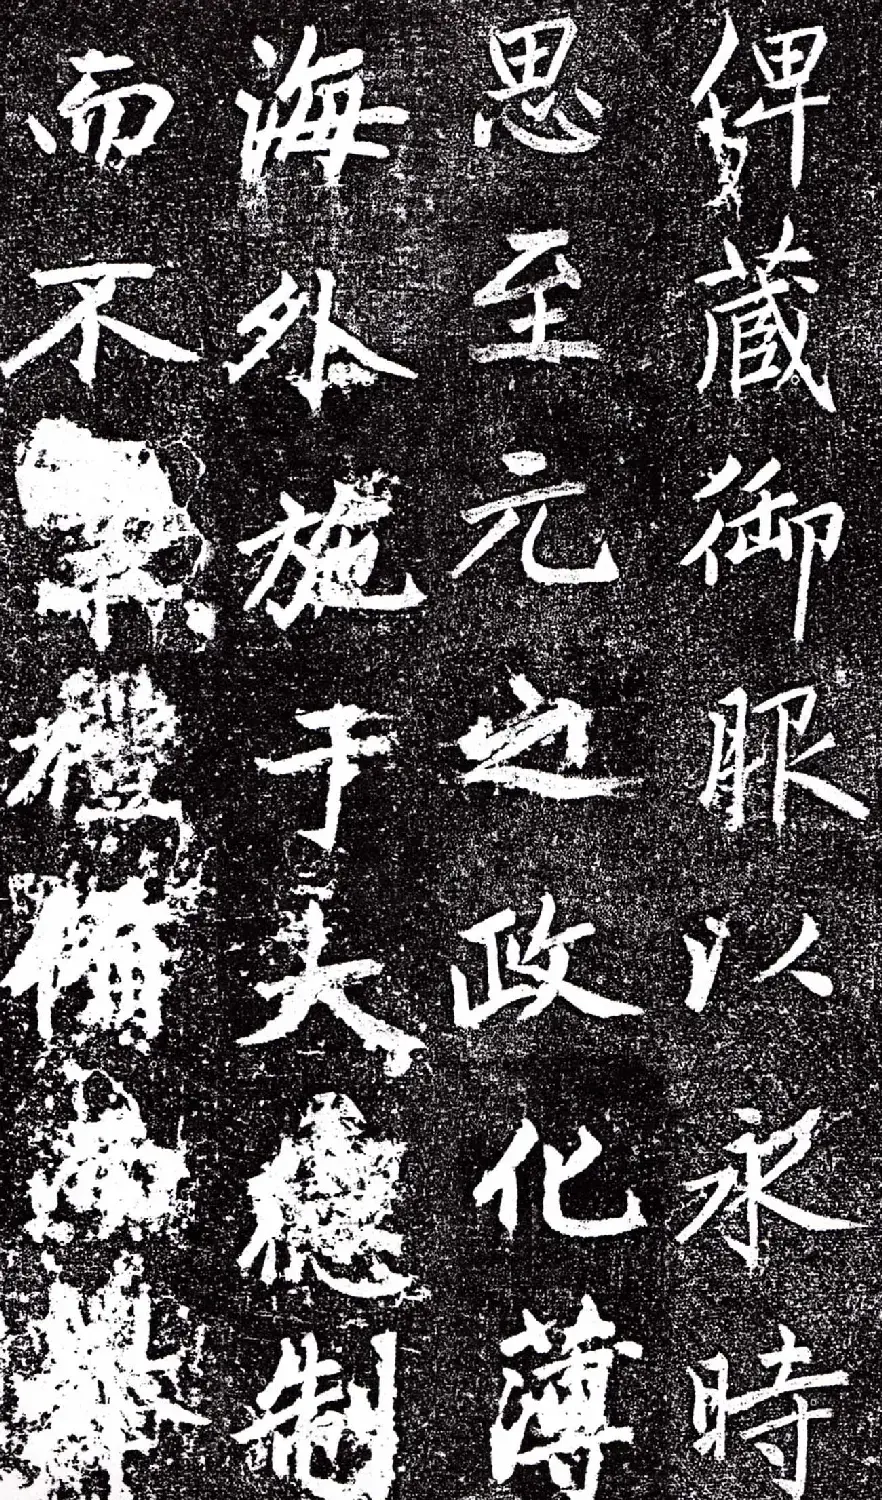 俾藏御服以永時
思至元之政化薄
海外施于大德制
而不禮備